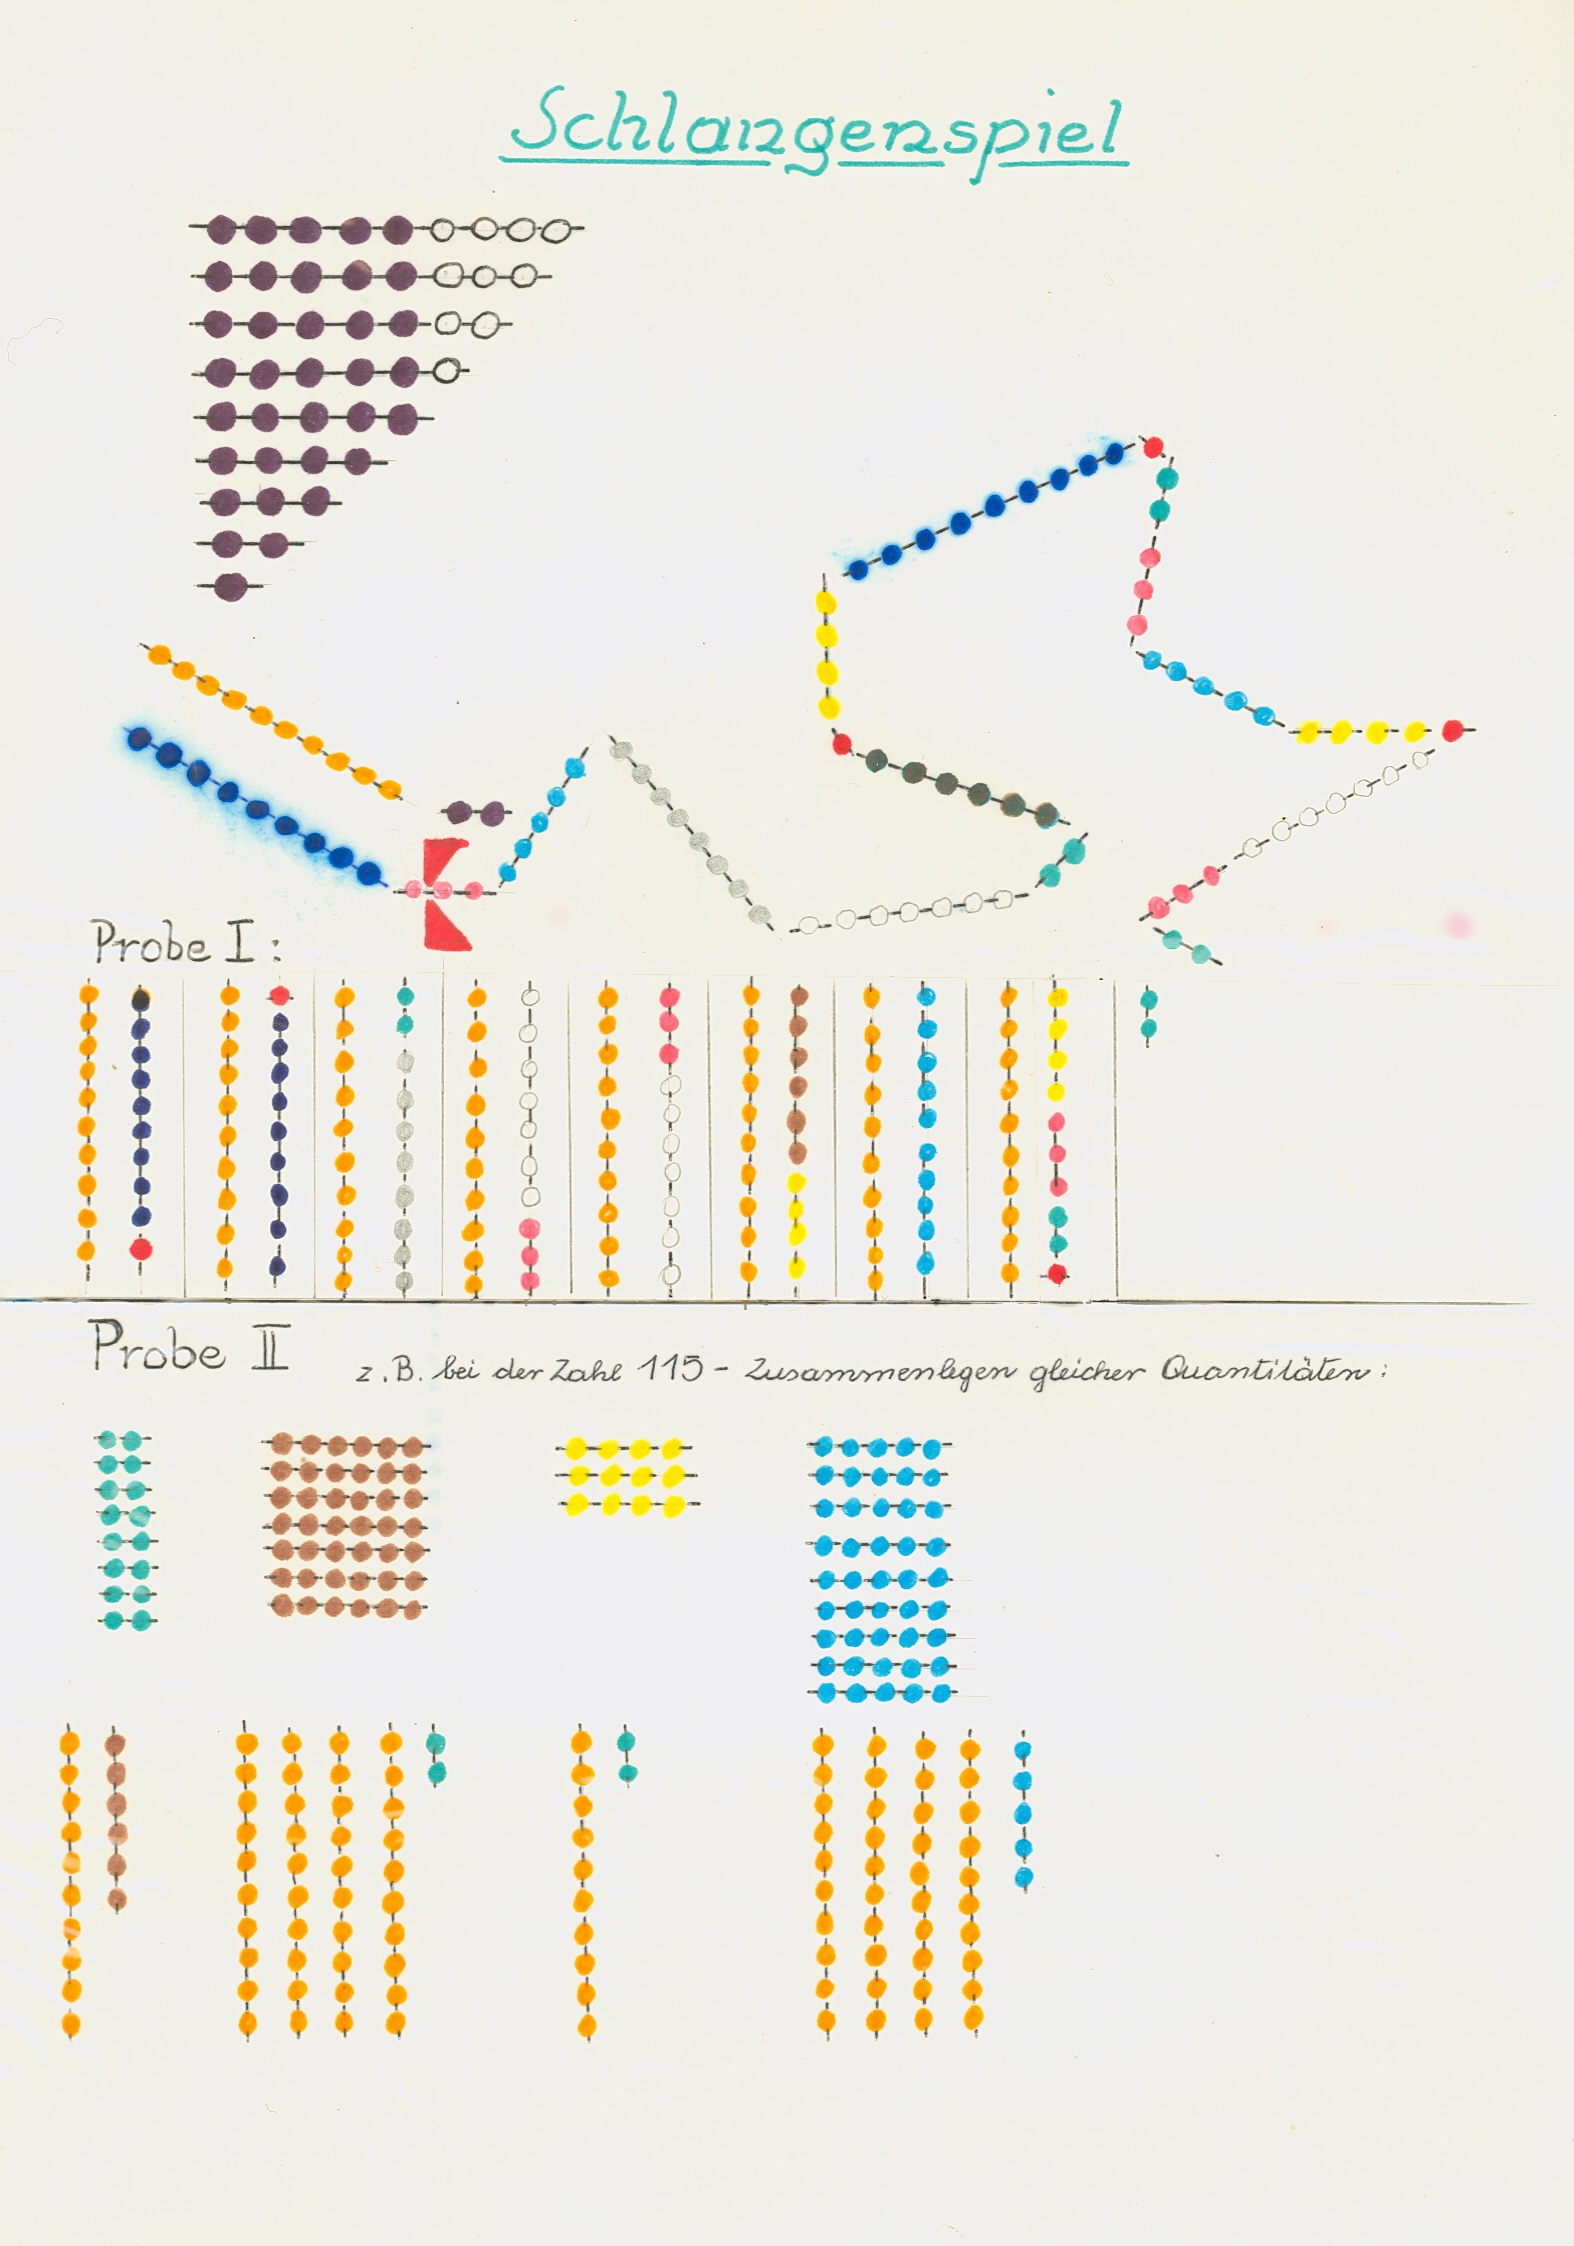 Schlangenspiel
Probe I:
Probe II
z.B. bei der Zahl 115 - Zusammenlegen gleicher Quantitäten: